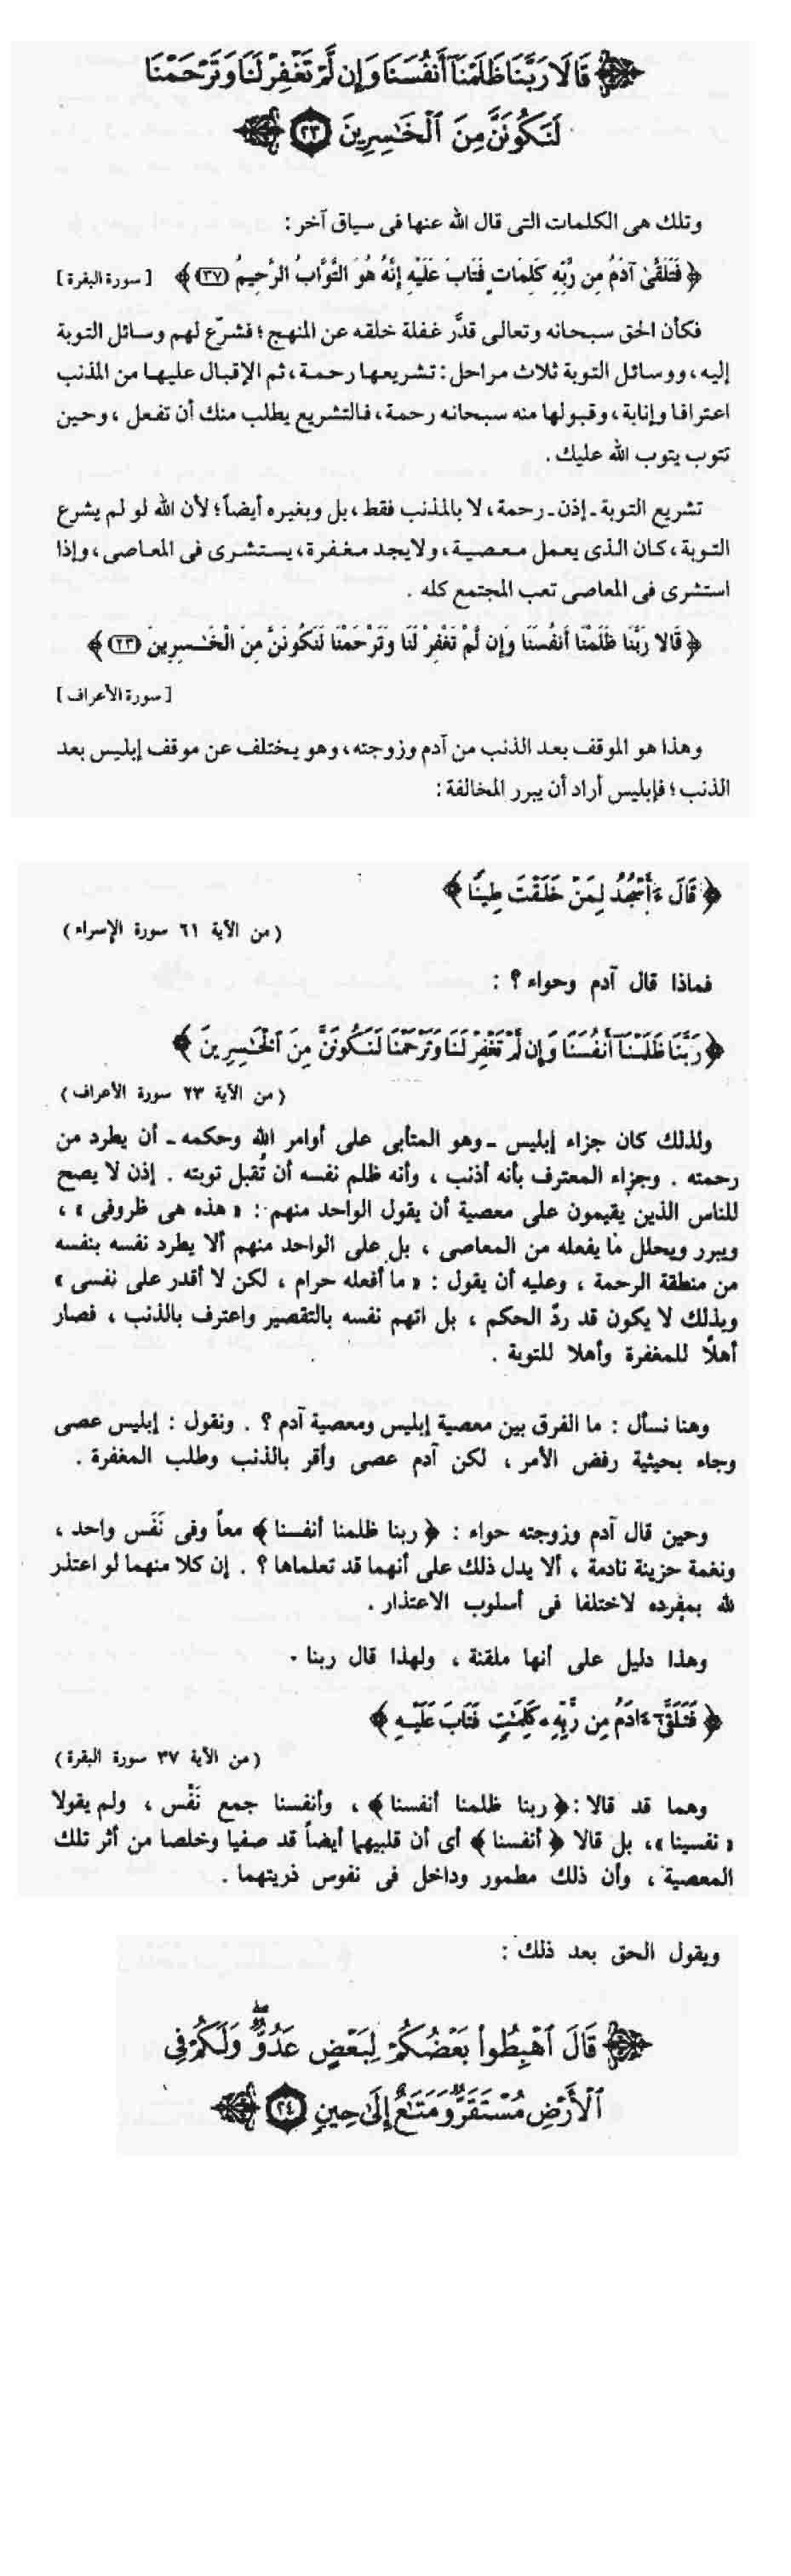 ﴿ قَالَا رَبَّنَا ظَلَمْنَآ أَنفُسَنَا وَإِن لَّمْ تَغْفِرْ لَنَا وَتَرْحَمْنَا
لَنَكُونَنَّ مِنَ ٱلْخَٰسِرِينَ ٢٣ ﴾
وتلك هى الكلمات التى قال الله عنها فى سياق آخر :
﴿ فَتَلَقَّىٰ آدَمُ مِن رَّبِّهِ كَلِمَاتٍ فَتَابَ عَلَيْهِ إِنَّهُ هُوَ التَّوَّابُ الرَّحِيمُ (٣٧) ﴾ [ سورة البقرة ]
فكأن الحق سبحانه وتعالى قدَّر غفلة خلقه عن المنهج ؛ فشرّع لهم وسائل التوبة
إليه ، ووسائل التوبة ثلاث مراحل : تشريعها رحمة ، ثم الإقبال عليها من المذنب
اعترافا وإنابة ، وقبولها منه سبحانه رحمة ، فالتشريع يطلب منك أن تفعل ، وحين
تتوب يتوب الله عليك .
تشريع التوبة ـ إذن ـ رحمة ، لا بالمذنب فقط ، بل وبغيره أيضاً ؛ لأن الله لو لم يشرع
التوبة ، كان الذى يعمل معصية ، ولا يجد مغفرة ، يستشرى فى المعاصى ، وإذا
استشرى فى المعاصى تعب المجتمع كله .
﴿ قَالا رَبَّنَا ظَلَمْنَا أَنفُسَنَا وَإِن لَّمْ تَغْفِرْ لَنَا وَتَرْحَمْنَا لَنَكُونَنَّ مِنَ الْخَـٰسِرِينَ (٢٣) ﴾
[ سورة الأعراف ]
وهذا هو الموقف بعد الذنب من آدم وزوجته ، وهو يختلف عن موقف إبليس بعد
الذنب ؛ فإبليس أراد أن يبرر المخالفة :
﴿ قَالَ ءَأَسْجُدُ لِمَنْ خَلَقْتَ طِينًا ﴾
( من الآية ٦١ سورة الإسراء )
فماذا قال آدم وحواء ؟ :
﴿ رَبَّنَا ظَلَمْنَآ أَنفُسَنَا وَإِن لَّمْ تَغْفِرْ لَنَا وَتَرْحَمْنَا لَنَكُونَنَّ مِنَ ٱلْخَٰسِرِينَ ﴾
( من الآية ٢٣ سورة الأعراف )
ولذلك كان جزاء إبليس ـ وهو المتأبى على أوامر الله وحكمه ـ أن يطرد من
رحمته . وجزاء المعترف بأنه أذنب ، وأنه ظلم نفسه أن تُقبل توبته . إذن لا يصح
للناس الذين يقيمون على معصية أن يقول الواحد منهم : « هذه هى ظروفى » ،
ويبرر ويحلل ما يفعله من المعاصى ، بل على الواحد منهم ألا يطرد نفسه بنفسه
من منطقة الرحمة ، وعليه أن يقول : « ما أفعله حرام ، لكن لا أقدر على نفسى »
وبذلك لا يكون قد ردّ الحكم ، بل اتهم نفسه بالتقصير واعترف بالذنب ، فصار
أهلاً للمغفرة وأهلا للتوبة .
وهنا نسأل : ما الفرق بين معصية إبليس ومعصية آدم ؟ . ونقول : إبليس عصى
وجاء بحيثية رفض الأمر ، لكن آدم عصى وأقر بالذنب وطلب المغفرة .
وحين قال آدم وزوجته حواء : ﴿ ربنا ظلمنا أنفسنا ﴾ معاً وفى نَفَس واحد ،
ونغمة حزينة نادمة ، ألا يدل ذلك على أنهما قد تعلماها ؟ . إن كلا منهما لو اعتذر
لله بمفرده لاختلفا فى أسلوب الاعتذار .
وهذا دليل على أنها ملقنة ، ولهذا قال ربنا .
﴿ فَتَلَقَّىٰٓ ءَادَمُ مِن رَّبِّهِۦ كَلِمَٰتٍ فَتَابَ عَلَيْهِ ﴾
( من الآية ٣٧ سورة البقرة )
وهما قد قالا : ﴿ ربنا ظلمنا أنفسنا ﴾ ، وأنفسنا جمع نَفْس ، ولم يقولا
« نفسينا » ، بل قالا ﴿ أنفسنا ﴾ أى أن قلبيهما أيضاً قد صفيا وخلصا من أثر تلك
المعصية ، وأن ذلك مطمور وداخل فى نفوس ذريتهما .
ويقول الحق بعد ذلك :
﴿ قَالَ ٱهْبِطُوا۟ بَعْضُكُمْ لِبَعْضٍ عَدُوٌّ ۖ وَلَكُمْ فِى
ٱلْأَرْضِ مُسْتَقَرٌّ وَمَتَٰعٌ إِلَىٰ حِينٍ ٢٤ ﴾